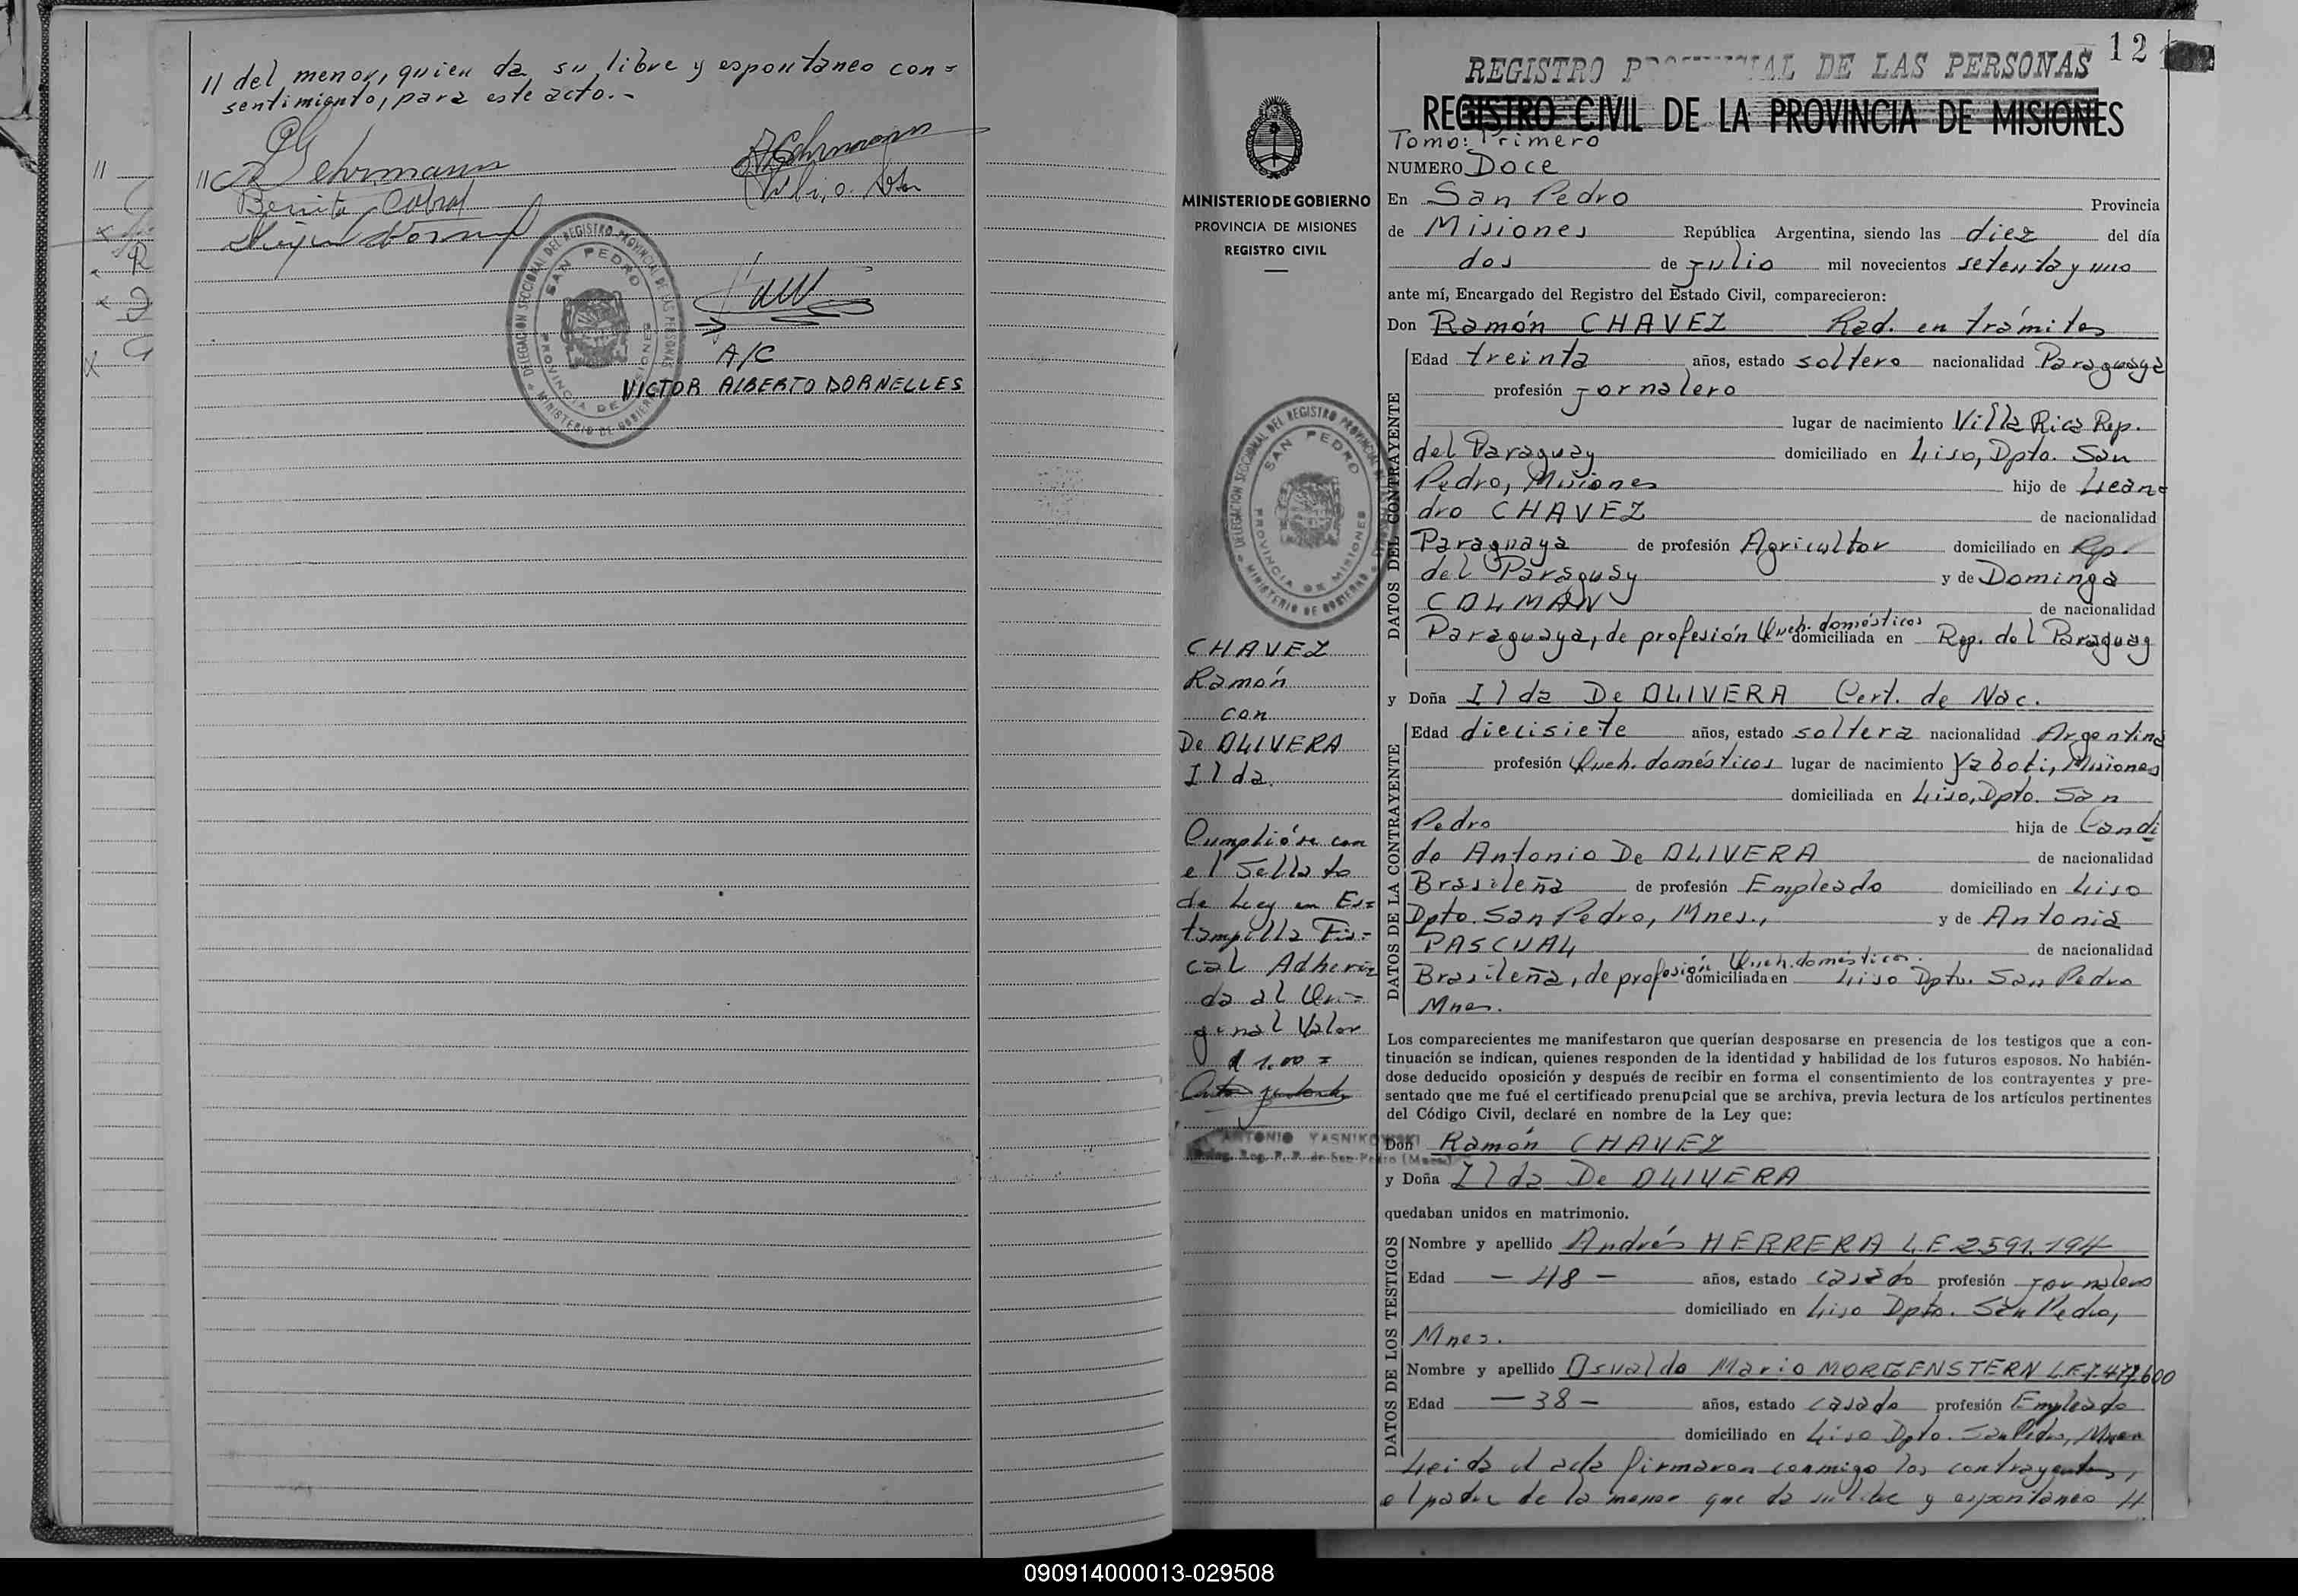 // del menor, quien da su libre y espontaneo con=
sentimiento, para este acto.-
Gehrmann
Benita Cabral
DELEGACION SECCIONAL DEL REGISTRO PROVINCIAL DE LAS PERSONAS
SAN PEDRO
PROVINCIA DE MISIONES
MINISTERIO DE GOBIERNO
A/C
VICTOR ALBERTO DORNELLES
12
REGISTRO PROVINCIAL DE LAS PERSONAS
REGISTRO CIVIL DE LA PROVINCIA DE MISIONES
MINISTERIO DE GOBIERNO
PROVINCIA DE MISIONES
REGISTRO CIVIL
DELEGACION SECCIONAL DEL REGISTRO PROVINCIAL
SAN PEDRO
PROVINCIA DE MISIONES
MINISTERIO DE GOBIERNO
CHAVEZ
Ramón
con
De OLIVERA
Ilda.
Cumplióse con
el Sellado
de Ley en Es=
tampilla Fis=
cal Adheri=
da al Ori=
ginal Valor
$ 1.00 =
ANTONIO YASNIKOWSKI
Tomo: Primero
NUMERO Doce
En San Pedro Provincia
de Misiones República Argentina, siendo las diez del día
dos de Julio mil novecientos setenta y uno
ante mí, Encargado del Registro del Estado Civil, comparecieron:
Don Ramón CHAVEZ Rad. en trámites
DATOS DEL CONTRAYENTE
Edad treinta años, estado soltero nacionalidad Paraguaya
profesión Jornalero
lugar de nacimiento Villa Rica Rep.
del Paraguay domiciliado en Liso, Dpto. San
Pedro, Misiones hijo de Lean=
dro CHAVEZ de nacionalidad
Paraguaya de profesión Agricultor domiciliado en Rep.
del Paraguay y de Dominga
COLMAN de nacionalidad
Paraguaya, de profesión Queh. domésticos domiciliada en Rep. del Paraguay
y Doña Ilda De OLIVERA Cert. de Nac.
DATOS DE LA CONTRAYENTE
Edad diecisiete años, estado soltera nacionalidad Argentina
profesión Queh. domésticos lugar de nacimiento Yaboti, Misiones
domiciliada en Liso, Dpto. San
Pedro hija de Candi
do Antonio De OLIVERA de nacionalidad
Brasileña de profesión Empleado domiciliado en Liso
Dpto. San Pedro, Mnes., y de Antonia
PASCUAL de nacionalidad
Brasileña, de profesión Queh. domésticos. domiciliada en Liso Dpto. San Pedro
Mnes.
Los comparecientes me manifestaron que querían desposarse en presencia de los testigos que a con-
tinuación se indican, quienes responden de la identidad y habilidad de los futuros esposos. No habién-
dose deducido oposición y después de recibir en forma el consentimiento de los contrayentes y pre-
sentado que me fué el certificado prenupcial que se archiva, previa lectura de los artículos pertinentes
del Código Civil, declaré en nombre de la Ley que:
Don Ramón CHAVEZ
y Doña Ilda De OLIVERA
quedaban unidos en matrimonio.
DATOS DE LOS TESTIGOS
Nombre y apellido Andrés HERRERA L.E 2591.194
Edad - 48 - años, estado casado profesión Jornalero
domiciliado en Liso Dpto. San Pedro,
Mnes.
Nombre y apellido Osvaldo Mario MORGENSTERN L.E 7.477.600
Edad - 38 - años, estado casado profesión Empleado
domiciliado en Liso Dpto. San Pedro, Mnes
Leida el acta firmaron conmigo los contrayentes,
el padre de la menor que da su libre y espontaneo //
090914000013-029508